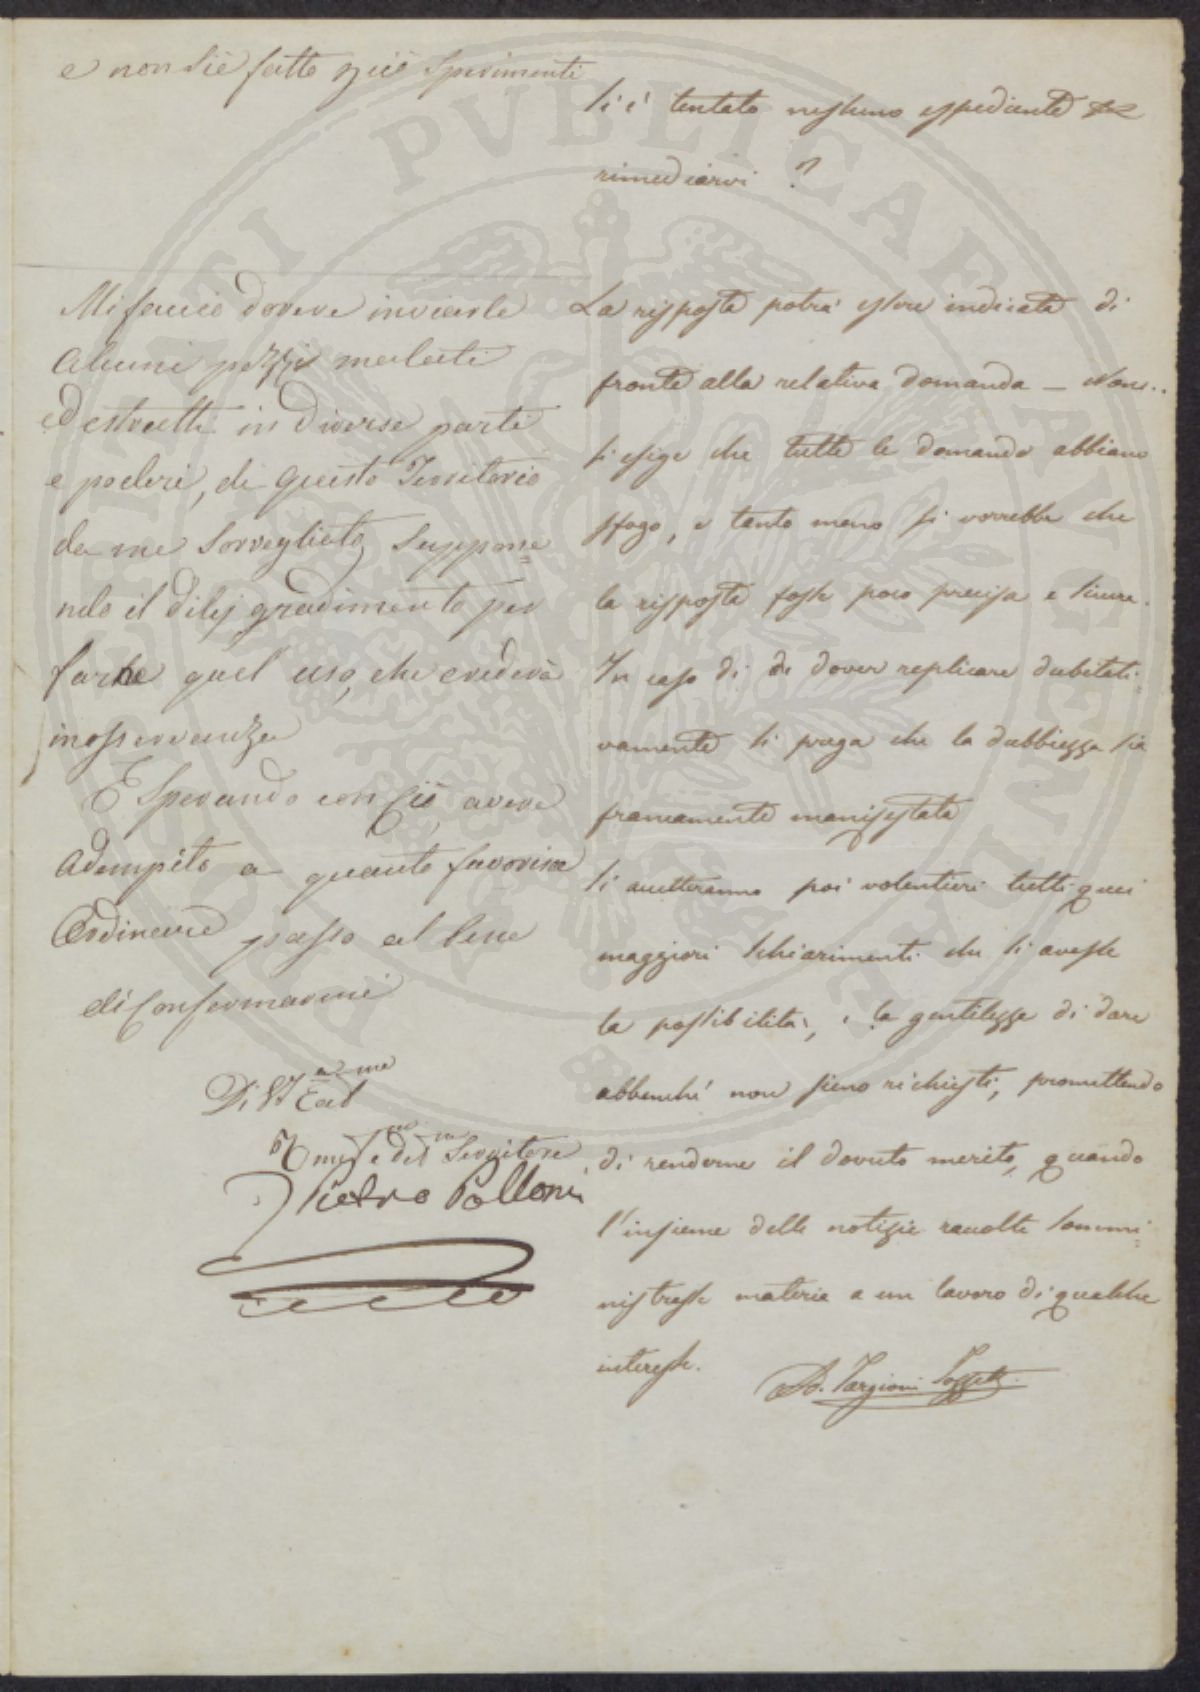 e non si è fatto più sperimenti
Mi faccio dovere inviarle
alcuni pezzi malati
ed estratti in diverse parti
e poderi, di questo Territorio
da me sorvegliato, suppone=
ndo il di lei gradimento per
farne quel uso, che crederà
in osservanza
E sperando con ciò, avere
adempito a quanto favorisce
Ordinarmi passo al bene
di Confermarmi
Di
Servitore
Pietro Polloni
si è tentato nessuno espediente per
rimediarvi ?
La risposta potrà essere indicata di
fronte alla relativa domanda — Non..
si esige che tutte le domande abbiano
sfogo, e tanto meno si vorrebbe che
la risposta fosse poco precisa e sicura.
In caso di di dover replicare dubitati=
vamente si prega che la dubbiezza sia
francamente manifestata
Si accetteranno poi volentieri tutti quei
maggiori schiarimenti che si avesse
la possibilità, e la gentilezza di dare
abbenché non sieno richiesti, promettendo
di renderne il dovuto merito, quando
l'insieme delle notizie raccolte sommi=
nistrasse materia a un lavoro di qualche
interesse.
Targioni Tozzetti